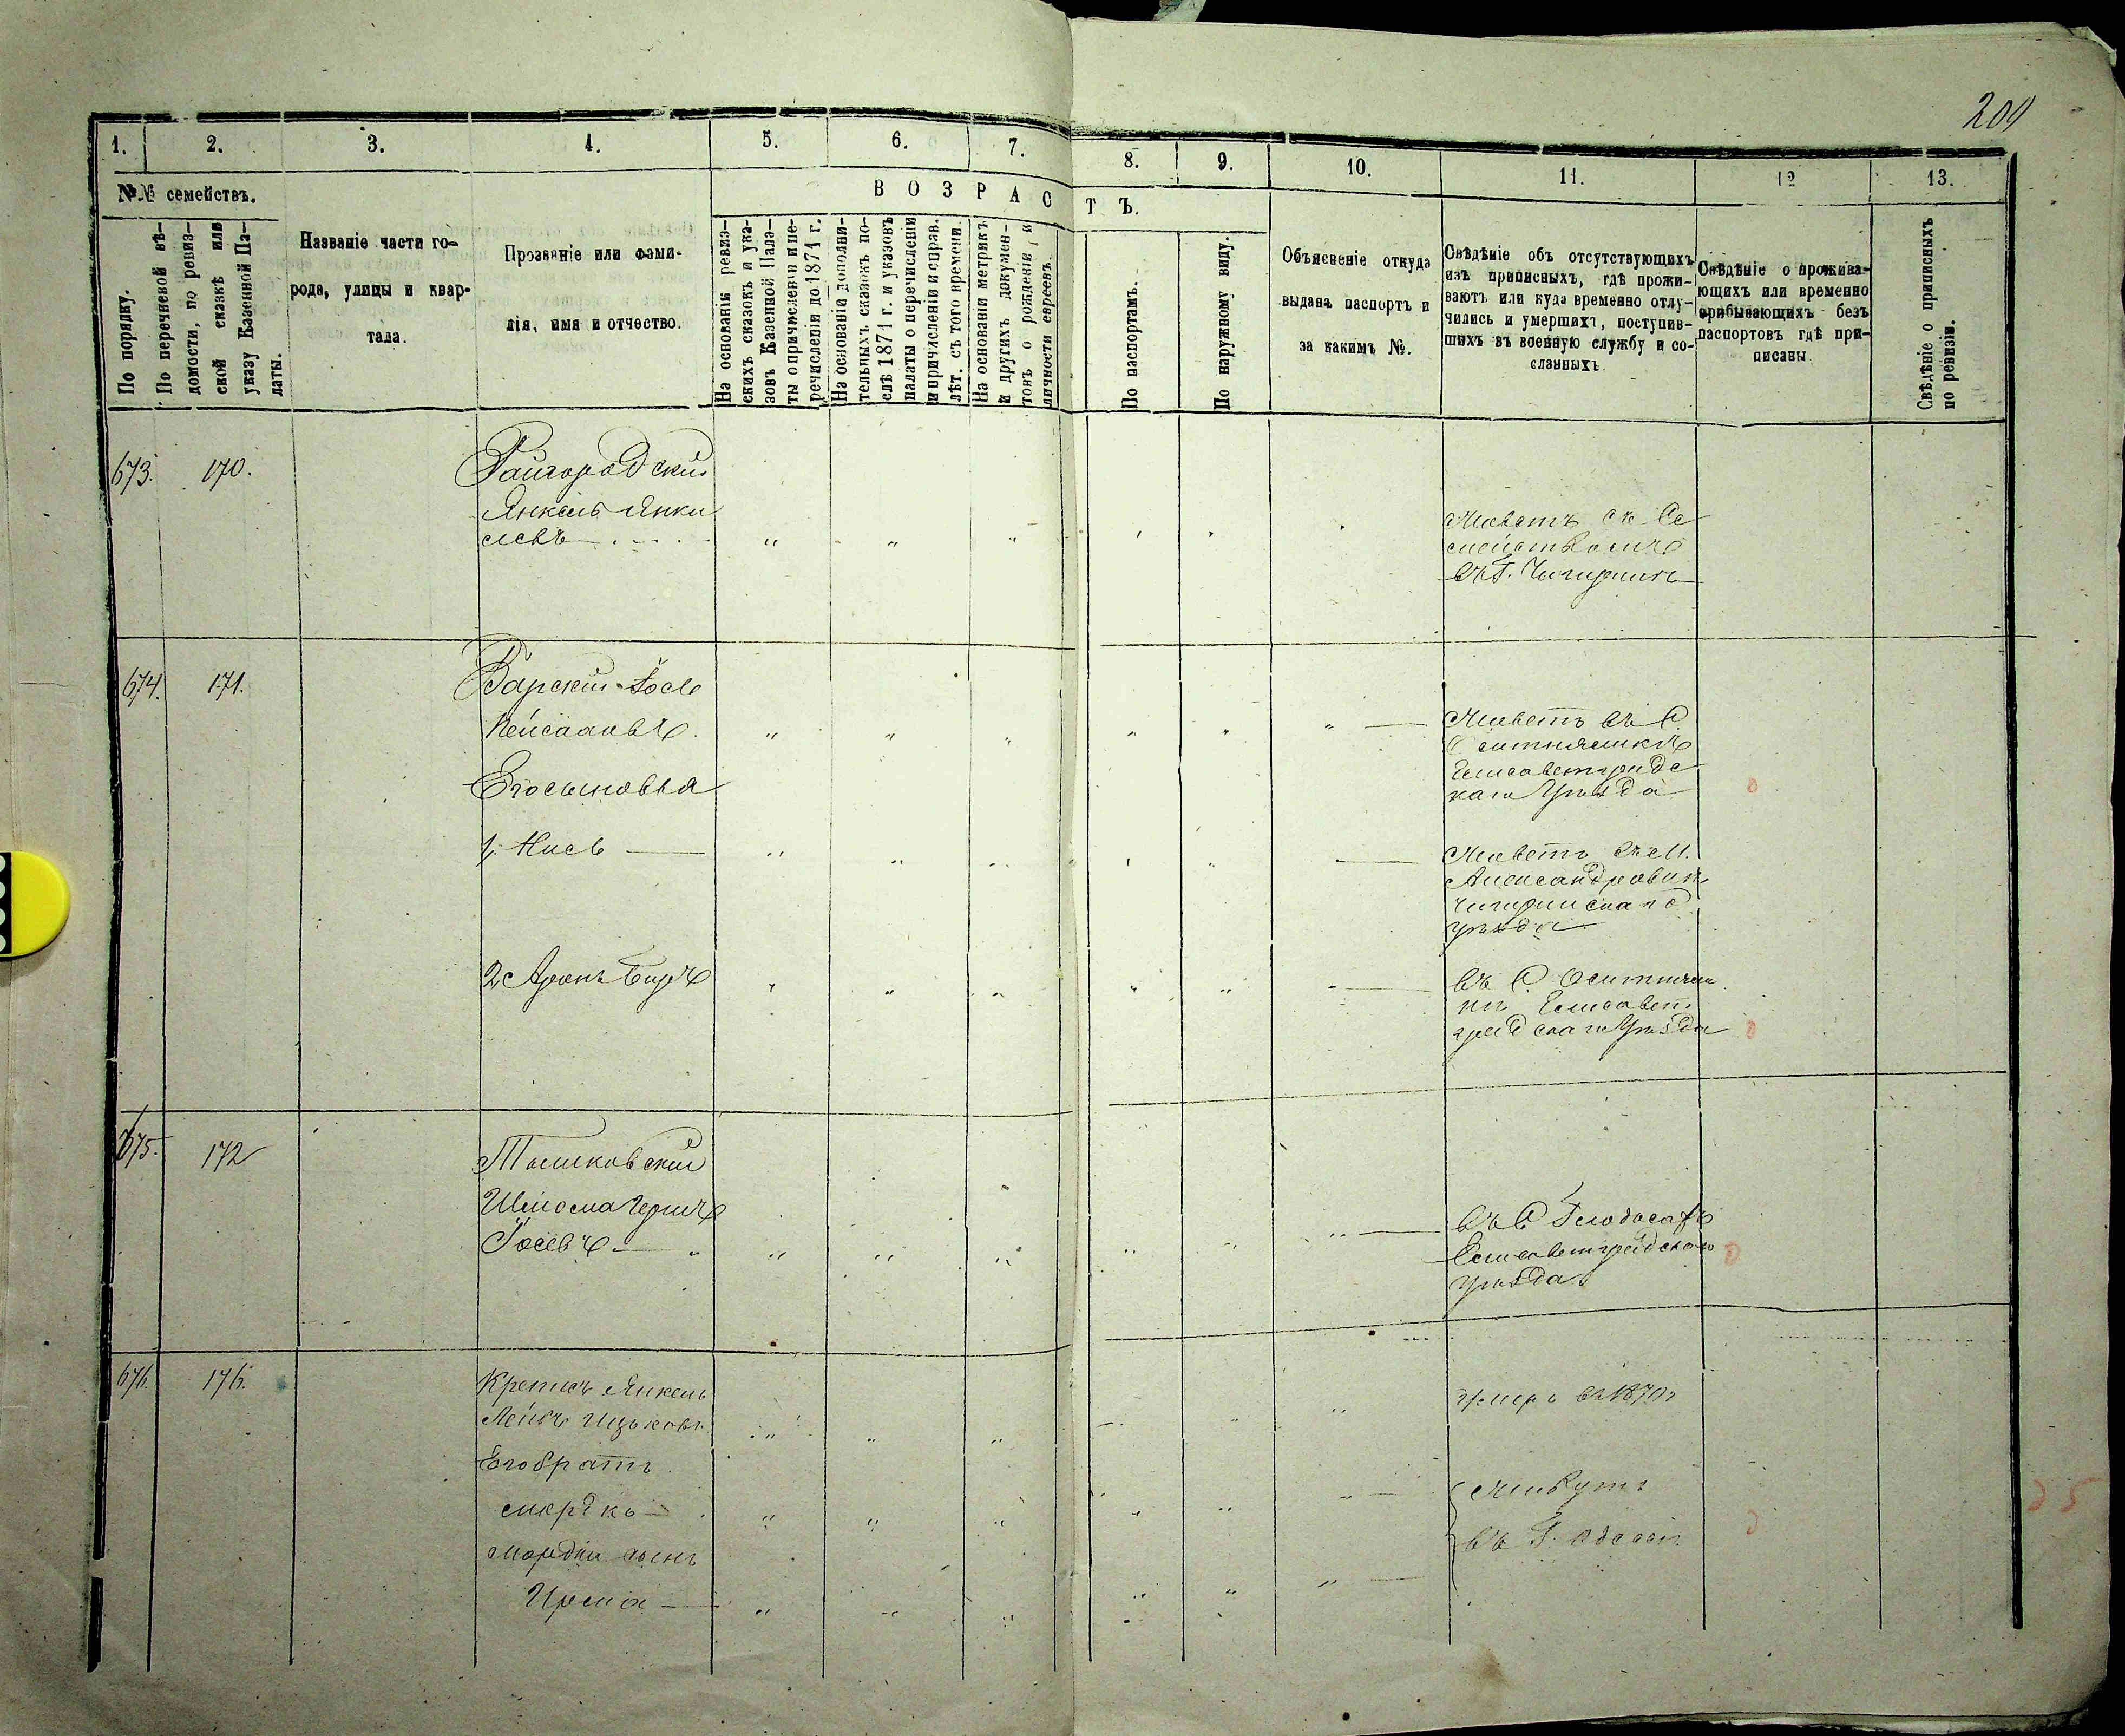 209
1. 2. 3. 4. 5. 6. 7. 8. 9. 10. 11. 12 13.
№№ семействъ.
По порядку.
По перечневой вѣ-
домости, по ревиз-
ской сказкѣ или
указу Казенной Па-
латы.
Названіе части го-
рода, улицы и квар-
тала.
Прозваніе или фами-
лія, имя и отчество.
ВОЗРАСТЪ.
На основаніи ревиз-
скихъ сказокъ и ука-
зовъ Казенной Пала-
ты о причисленіи и пе-
речисленіи до 1871 г.
На основаніи дополни-
тельныхъ сказокъ по-
слѣ 1871 г. и указовъ
палаты о перечисленіи
и причисленіи и справ.
лѣт. съ того времени.
На основаніи метрикъ
и другихъ докумен-
товъ о рожденіи и
личности евреевъ.
По паспортамъ.
По наружному виду.
Объясненіе откуда
выданъ паспортъ и
за какимъ №.
Свѣдѣніе объ отсутствующихъ
изъ приписныхъ, гдѣ прожи-
ваютъ или куда временно отлу-
чились и умершихъ, поступив-
шихъ въ военную службу и со-
сланныхъ.
Свѣдѣніе о прожива-
ющихъ или временно
прибывающихъ безъ
паспортовъ гдѣ при-
писаны
Свѣдѣніе о приписныхъ
по ревизіи.
673. 170.
Райгородскій
Янкель Янке
левъ
Живетъ съ Се
мействомъ
въ Г. Чигиринѣ
674. 171.
Барскій Іось
Лейзаровъ
Его сыновья
Живетъ въ С
Оситняжкѣ
Елисаветградс
каго Уѣзда
1, Нись
Живетъ въ м.
Александровкѣ
Чигиринскаго
уѣзда
2 Аронъ Беръ
въ С Оситняж
кѣ Елисавет
градскаго Уѣзда
675. 172
Ташковскій
Шлема Гершъ
Іосевъ
въ С
Елисаветградскаго
уѣзда
676. 176.
Янкель
Лейбъ Ицьковъ
Его братъ
умеръ въ 1870г
Живутъ
въ Г. Одессѣ